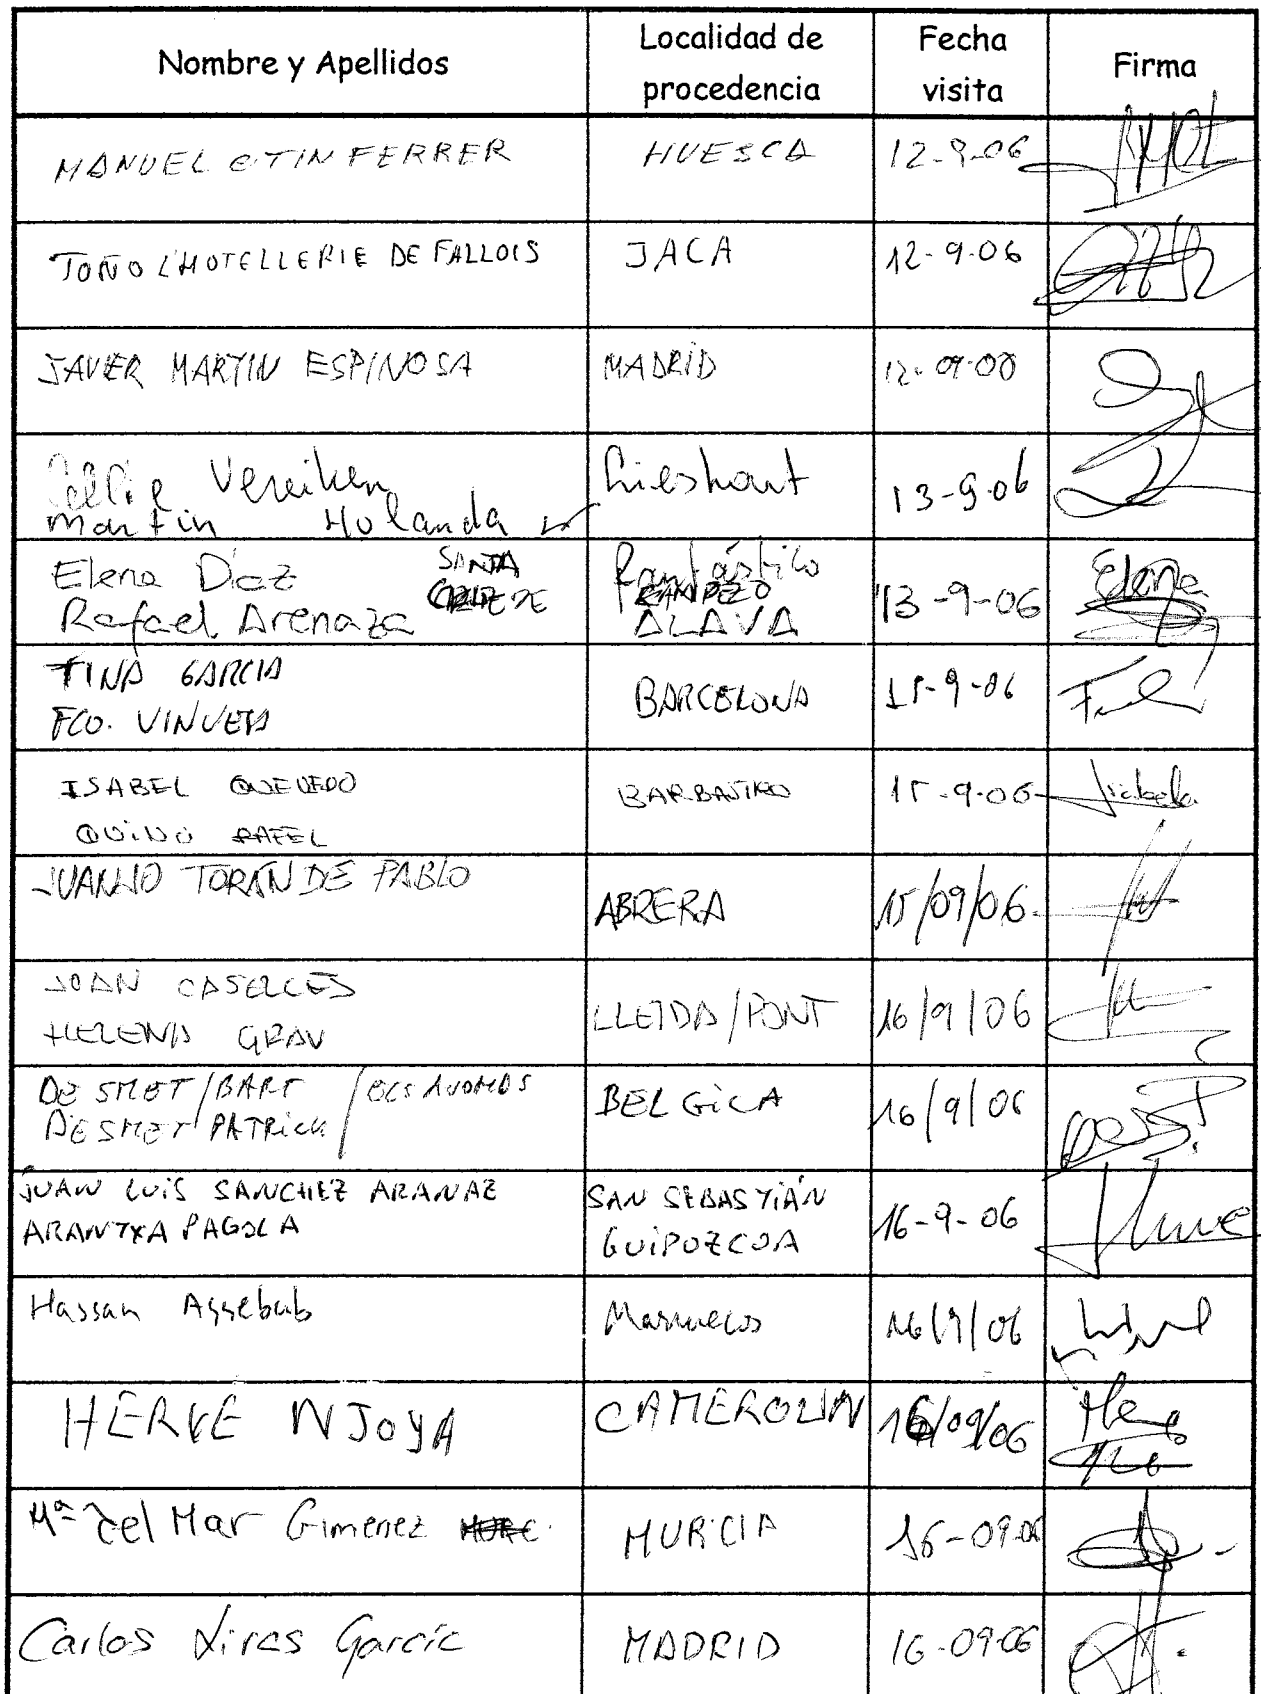 Nombre y Apellidos
Localidad de
procedencia
Fecha
visita
Firma
MANUEL OTIN FERRER
HUESCA
12-9-06
TOÑO L'HOTELLERIE DE FALLOIS
JACA
12-9-06
JAVIER MARTIN ESPINOSA
MADRID
12-09-00
Vereiken
Martin Holanda
Lieshout
13-9-06
Elena Diaz
SANTA
CRUZ DE
Rafael Arenaza
Fantástico
CAMPEZO
ALAVA
13-9-06
Elena
TINA GARCIA
FCO. VINUESA
BARCELONA
15-9-06
ISABEL QUEVEDO
QUINO RAFEL
BARBASTRO
15-9-06
Isabela
JUANJO TORAN DE PABLO
ABRERA
15/09/06
JOAN CASELLES
HELENA GRAU
LLEIDA/PONT
16/9/06
DE SMET/BART
DESMET PATRICK
BELGiCA
16/9/06
JUAN LUIS SANCHEZ ARANAZ
ARANTXA PAGOLA
SAN SEBASTIÁN
GUIPOZCOA
16-9-06
Hassan
Marruecos
16/9/06
HERVE NJOYA
CAMEROUN
16/09/06
Mª del Mar Gimenez
MURCIA
16-09-06
Carlos Liras Garcia
MADRID
16-09-06